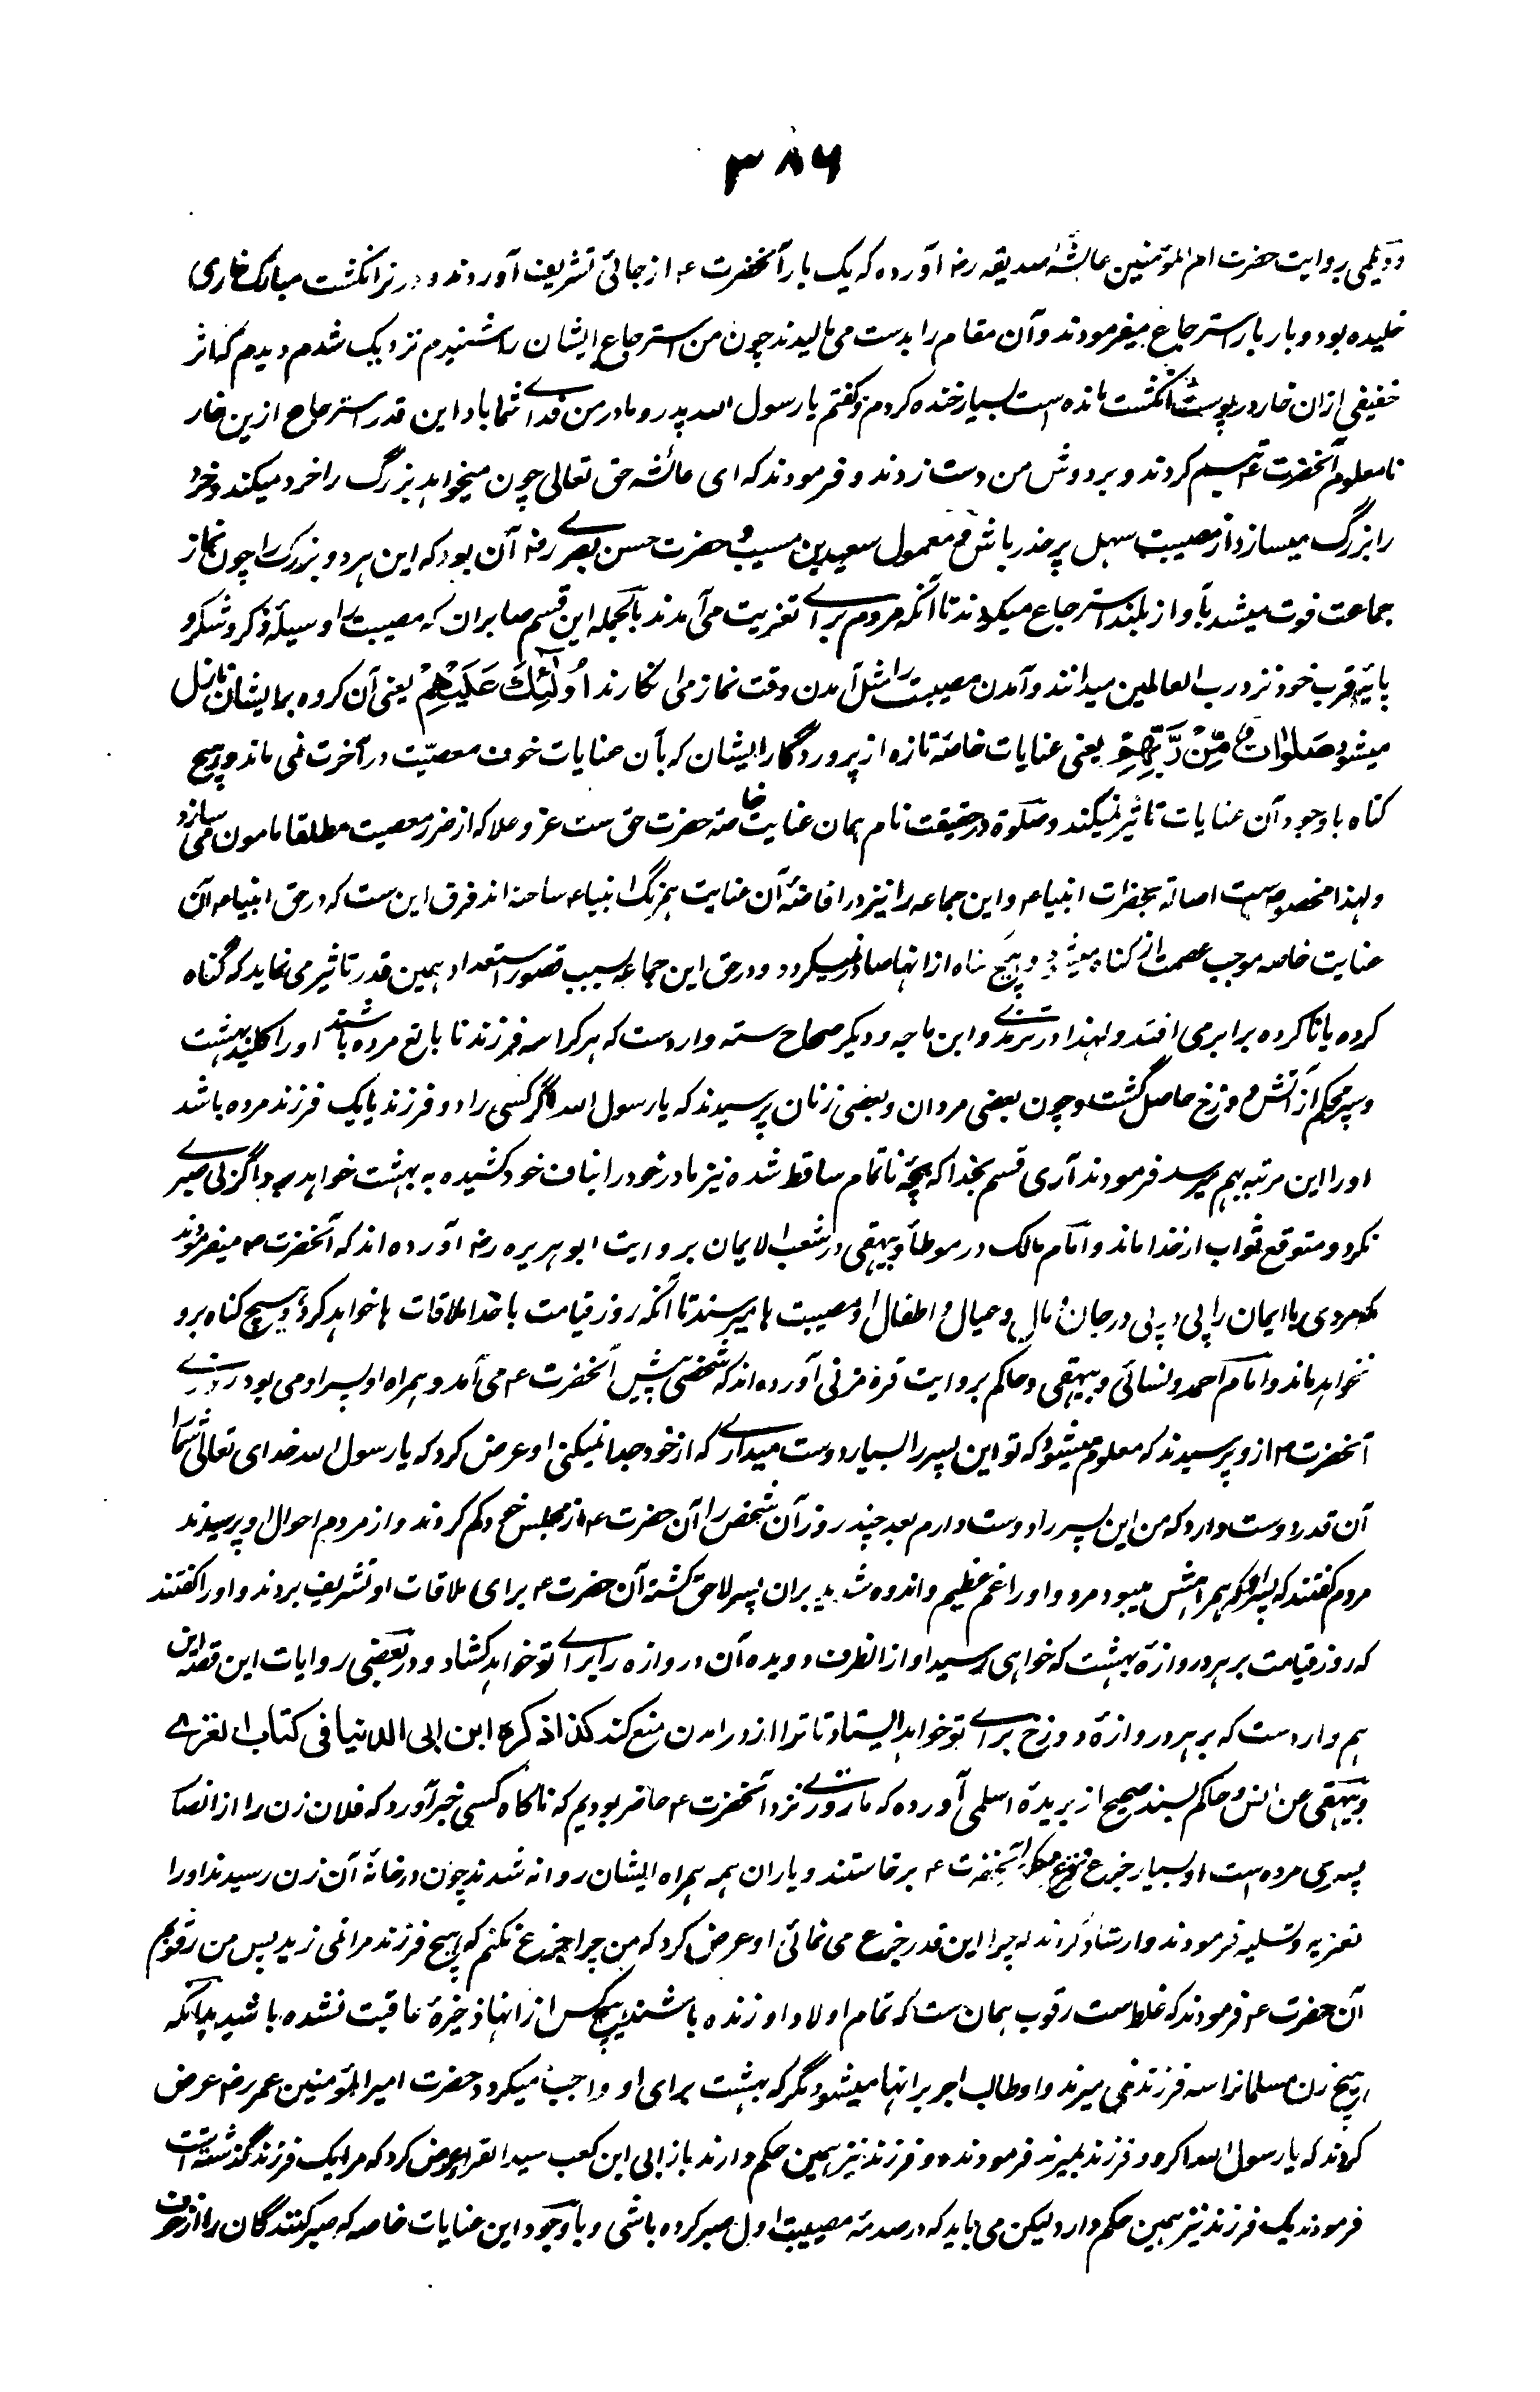 ۳۸۶
و دیلمی بروایت حضرت ام المؤمنین عائشهٔ صدیقه رضہ آورده که یک بار آنحضرت ؐ از جائی تشریف آوردند و در نر انگشت مبارک خاری
خلیده بود و بار بار استرجاع میفرمودند و آن مقام را بدست می مالیدند چون من استرجاع ایشان را شنیدم نزدیک شدم دیدم که اثر
خفیفی ازان خار در پوست انگشت مانده است بسیار خنده کردم و گفتم یا رسول الله پدر و مادر من فدای شما باد این قدر استرجاع ازین خار
نامعلوم آنحضرت ؐ تبسم کردند و بر دوش من دست زدند و فرمودند که ای عائشه حق تعالی چون میخواهد بزرگ را خرد میکند و خرد
را بزرگ میسازد از مصیبت سهل پر حذر باش و معمول سعید بن مسیب و حضرت حسن بصری رضہ آن بود که این هر دو بزرگ را چون نماز
جماعت فوت میشد بآواز بلند استرجاع میکردند تا آنکه مردم برای تعزیت می آمدند بالجمله این قسم صابران که مصیبت را وسیلهٔ ذکر و شکر و
پایهٔ قرب خود نزد رب العالمین میدانند و آمدن مصیبت را مثل آمدن وقت نماز می انگارند اُولٰٓئِكَ عَلَيْهِمْ یعنی آن گروه بر ایشان نازل
میشود صَلَوٰاتٌ مِّنْ رَّبِّهِمْ یعنی عنایات خاصهٔ تازه از پروردگار ایشان که بآن عنایات خوف معصیت در آخرت نمی ماند و هیچ
گناه باوجود آن عنایات تاثیر نمیکند و صلوة در حقیقت نام همان عنایت خاصه حضرت حق ست عز و علا که از ضرر معصیت مطلقا مامون می سازد
و لهذا مخصوص ست اصالة بحضرات انبیاء ؑ و این جماعه را نیز در افاضهٔ آن عنایت همرنگ انبیاء ؑ ساخته اند فرق این ست که در حق انبیاء ؑ آن
عنایت خاصه موجب عصمت از گناه میشود و هیچ گناه از انها صادر نمیگردد و در حق این جماعه بسبب قصور استعداد همین قدر تاثیر می نماید که گناه
کرده با ناکرده برابر می افتد و لهذا در ترمذی و ابن ماجه و دیگر صحاح سته وارد ست که هر کرا سه فرزند نابالغ مرده باشند او را کلید بهشت
و سپر محکم از آتش دوزخ حاصل گشت و چون بعضی مردان و بعضی زنان پرسیدند که یا رسول الله اگر کسی را دو فرزند یا یک فرزند مرده باشد
او را این مرتبه بهم میرسد فرمودند آری قسم بخدا که بچهٔ ناتمام ساقط شده نیز مادر خود را بناف خود کشیده به بهشت خواهد برد اگر بی صبری
نکرد و متوقع ثواب از خدا ماند و امام مالک در موطأ و بیهقی در شعب الایمان بروایت ابو هریره رضہ آورده اند که آنحضرت ؐ میفرمودند
که مردی با ایمان را پی در پی در جان و مال و عیال و اطفال او مصیبت ها میرسند تا آنکه روز قیامت با خدا ملاقات ها خواهد کرد و هیچ گناه برو
نخواهد ماند و امام احمد و نسائی و بیهقی و حاکم بروایت قرهٔ مزنی آورده اند که شخصی پیش آنحضرت ؐ می آمد و همراه او پسر او می بود روزی
آنحضرت ؐ از و پرسیدند که معلوم میشود که تو این پسر را بسیار دوست میداری که از خود جدا نمیکنی او عرض کرد که یا رسول الله خدای تعالی شما را
آن قدر دوست دارد که من این پسر را دوست دارم بعد چند روز آن شخص را آن حضرت ؐ از مجلس خود گم کردند و از مردم احوال او پرسیدند
مردم گفتند که پسر او که همراهش میبود مرد و او را غم عظیم و اندوه شدید بران پسر لاحق گشته آن حضرت ؐ برای ملاقات او تشریف بردند و او را گفتند
که روز قیامت بر هر دروازهٔ بهشت که خواهی رسید او از انطرف دویده آن دروازه را برای تو خواهد کشاد و در بعضی روایات این قصه این
هم وارد ست که بر هر دروازهٔ دوزخ برای تو خواهد ایستاد تا ترا از درامدن منع کند کذا ذکره ابن ابی الدنیا فی کتاب العزی
و بیهقی عن انس و حاکم بسند صحیح از بریدهٔ اسلمی آورده که ما روزی نزد آنحضرت ؐ حاضر بودیم که ناگاه کسی خبر آورد که فلان زن را از انصار
پسری مرده است او بسیار جزع فزع میکند آنحضرت ؐ برخاستند و یاران همه همراه ایشان روانه شدند چون در خانهٔ آن زن رسیدند او را
تعزیه و تسلیه فرمودند و ارشاد کردند که چرا این قدر جزع می نمائی او عرض کرد که من چرا جزع نکنم که هیچ فرزند مرا نمی زید پس من رقوبم
آن حضرت ؐ فرمودند که غلط است رقوب همان ست که تمام اولاد او زنده باشند هیچکس از انها ذخیرهٔ عاقبت نشده باشد بدانکه
هیچ زن مسلمانرا سه فرزند نمی میرند و او طالب اجر بر انها میشود مگر که بهشت برای او واجب میگردد حضرت امیر المؤمنین عمر رضہ عرض
کردند که یا رسول الله اگر دو فرزند بمیرند فرمودند دو فرزند نیز همین حکم دارند باز ابی ابن کعب سید القراء عرض کرد که مرا یک فرزند گذشته است
فرمودند یک فرزند نیز همین حکم دارد لیکن می باید که در صدمهٔ مصیبت اول صبر کرده باشی و باوجود این عنایات خاصه که صبر کنندگان را از خوف